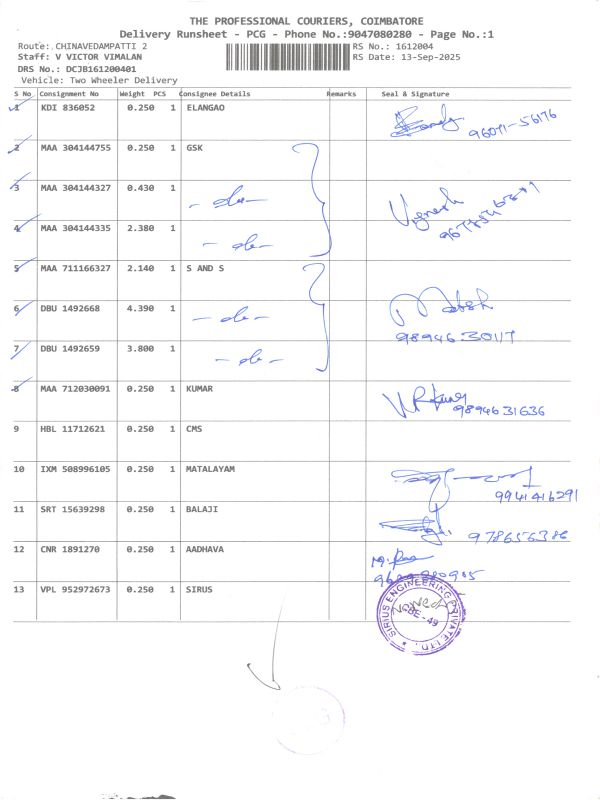 THE PROFESSIONAL COURIERS, COIMBATORE
Delivery Runsheet - PCG - Phone No.:9047080280 - Page No.:1
Route: CHINAVEDAMPATTI 2 RS No.: 1612004
Staff: V VICTOR VIMALAN RS Date: 13-Sep-2025
DRS No.: DCJB161200401
Vehicle: Two Wheeler Delivery
S No Consignment No Weight PCS Consignee Details Remarks Seal & Signature
1 KDI 836052 0.250 1 ELANGAO
96071-56176
2 MAA 304144755 0.250 1 GSK
3 MAA 304144327 0.430 1 - do - Vignesh
4 MAA 304144335 2.380 1 - do -
5 MAA 711166327 2.140 1 S AND S
6 DBU 1492668 4.390 1 - do -
98946 30117
7 DBU 1492659 3.800 1 - do -
8 MAA 712030091 0.250 1 KUMAR
9894631636
9 HBL 11712621 0.250 1 CMS
10 IXM 508996105 0.250 1 MATALAYAM
9941416291
11 SRT 15639298 0.250 1 BALAJI
12 CNR 1891270 0.250 1 AADHAVA
13 VPL 952972673 0.250 1 SIRUS
SIRIUS ENGINEERING PRIVATE LTD.
CBE-49